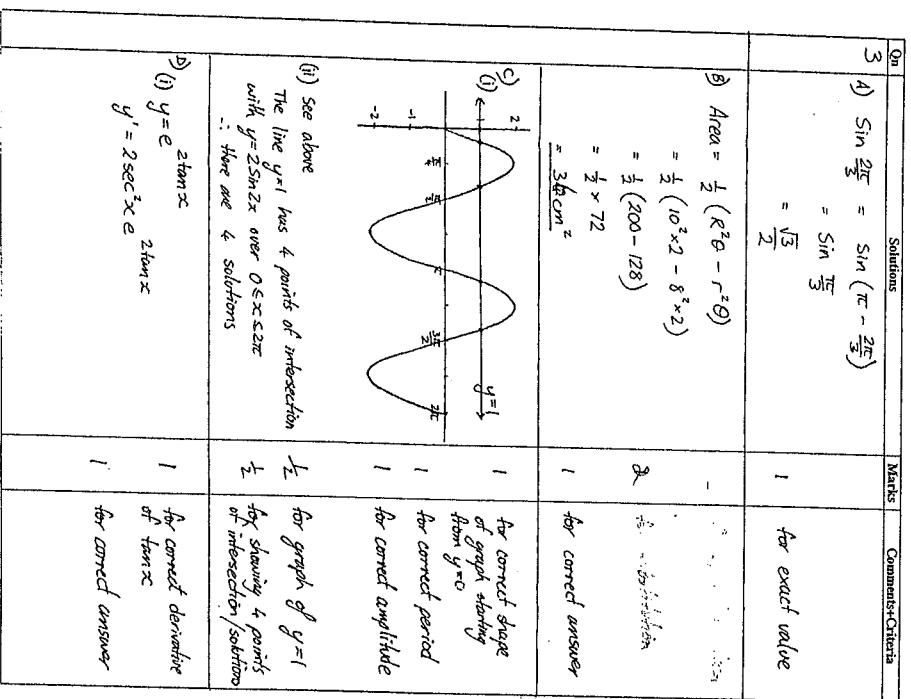 Qn Solutions Marks Comments+Criteria
3 A) Sin 2π/3 = sin (π - 2π/3) 1 for exact value
= Sin π/3
= √3/2
B) Area = 1/2 (R²θ - r²θ)
= 1/2 (10²×2 - 8²×2)
= 1/2 (200 - 128) 2
= 1/2 × 72
= 36cm² 1 for correct answer
C)
(i)
2
1
-1
-2
π/4 π/2 π 3π/2 2π
y=1
1 for correct shape
of graph starting
from y=0
1 for correct period
1 for correct amplitude
(ii) See above
The line y=1 has 4 points of intersection
with y=2Sin2x over 0≤x≤2π
∴ there are 4 solutions
1/2 for graph of y=1
1/2 for showing 4 points
of intersection/solutions
D)
(i) y = e^2tanx
y' = 2sec²x e^2tanx
1 for correct derivative
of tanx
1 for correct answer